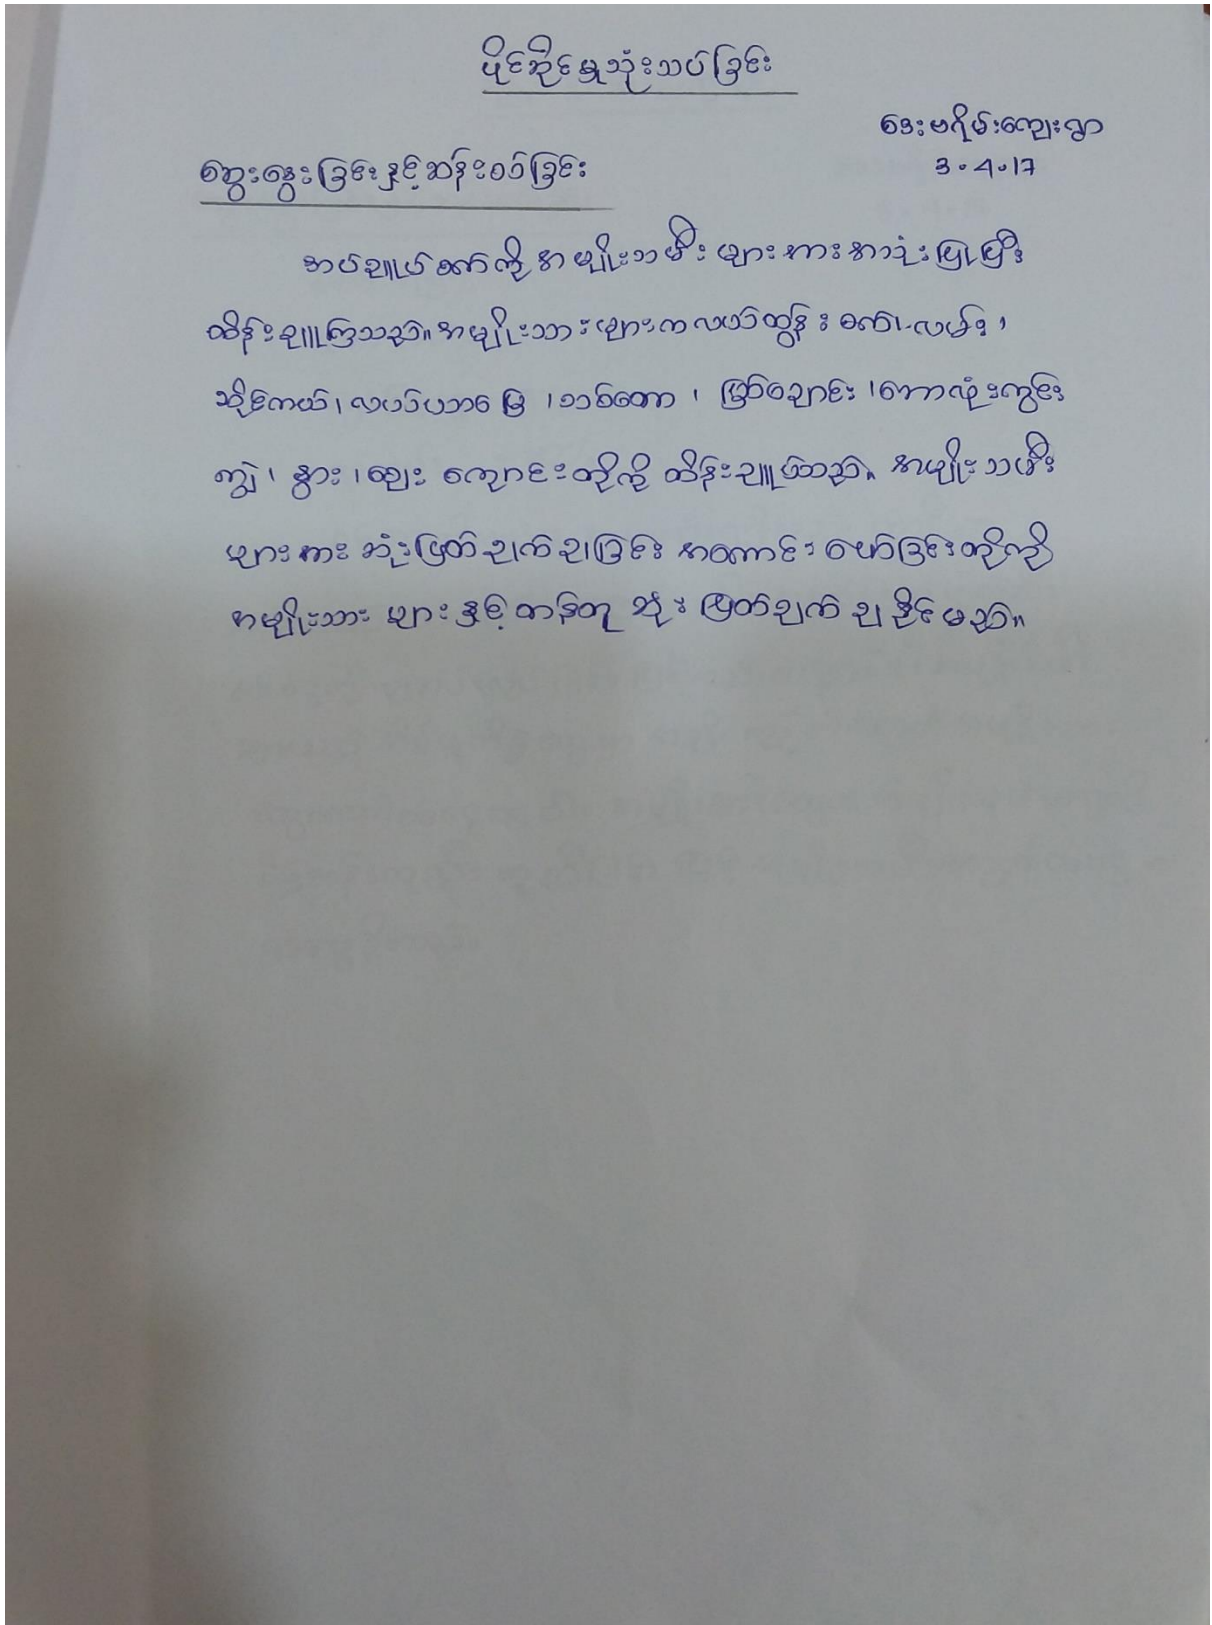 ပိုင်ဆိုင်မှုသုံးသပ်ခြင်း
ဒေးဗရိမ်းကျေးရွာ
3.4.17
ဆွေးနွေးခြင်းနှင့်ဆန်းစစ်ခြင်း
အပ်ချုပ်စက်ကို အမျိုးသမီး များကားအသုံးပြုပြီး
ထိန်းချူကြသည်။ အမျိုးသားများကလယ်ထွန်းစက်၊ လမ်း၊
ဆိုင်ကယ်၊ လယ်ယာမြေ ၊သစ်တော ၊ မြစ်ချောင်း ၊ဘောလုံးကွင်း
ကျွဲ ၊ နွား ၊ဈေး ကျောင်းတို့ကို ထိန်းချူပ်သည်။ အမျိုးသမီး
များကား ဆုံးဖြတ်ချက်ချခြင်း အကောင်းဖော်ခြင်းတို့ကို
အမျိုးသား များနှင့်တန်တူ ဆုံးဖြတ်ချက် ချနိုင်မည်။